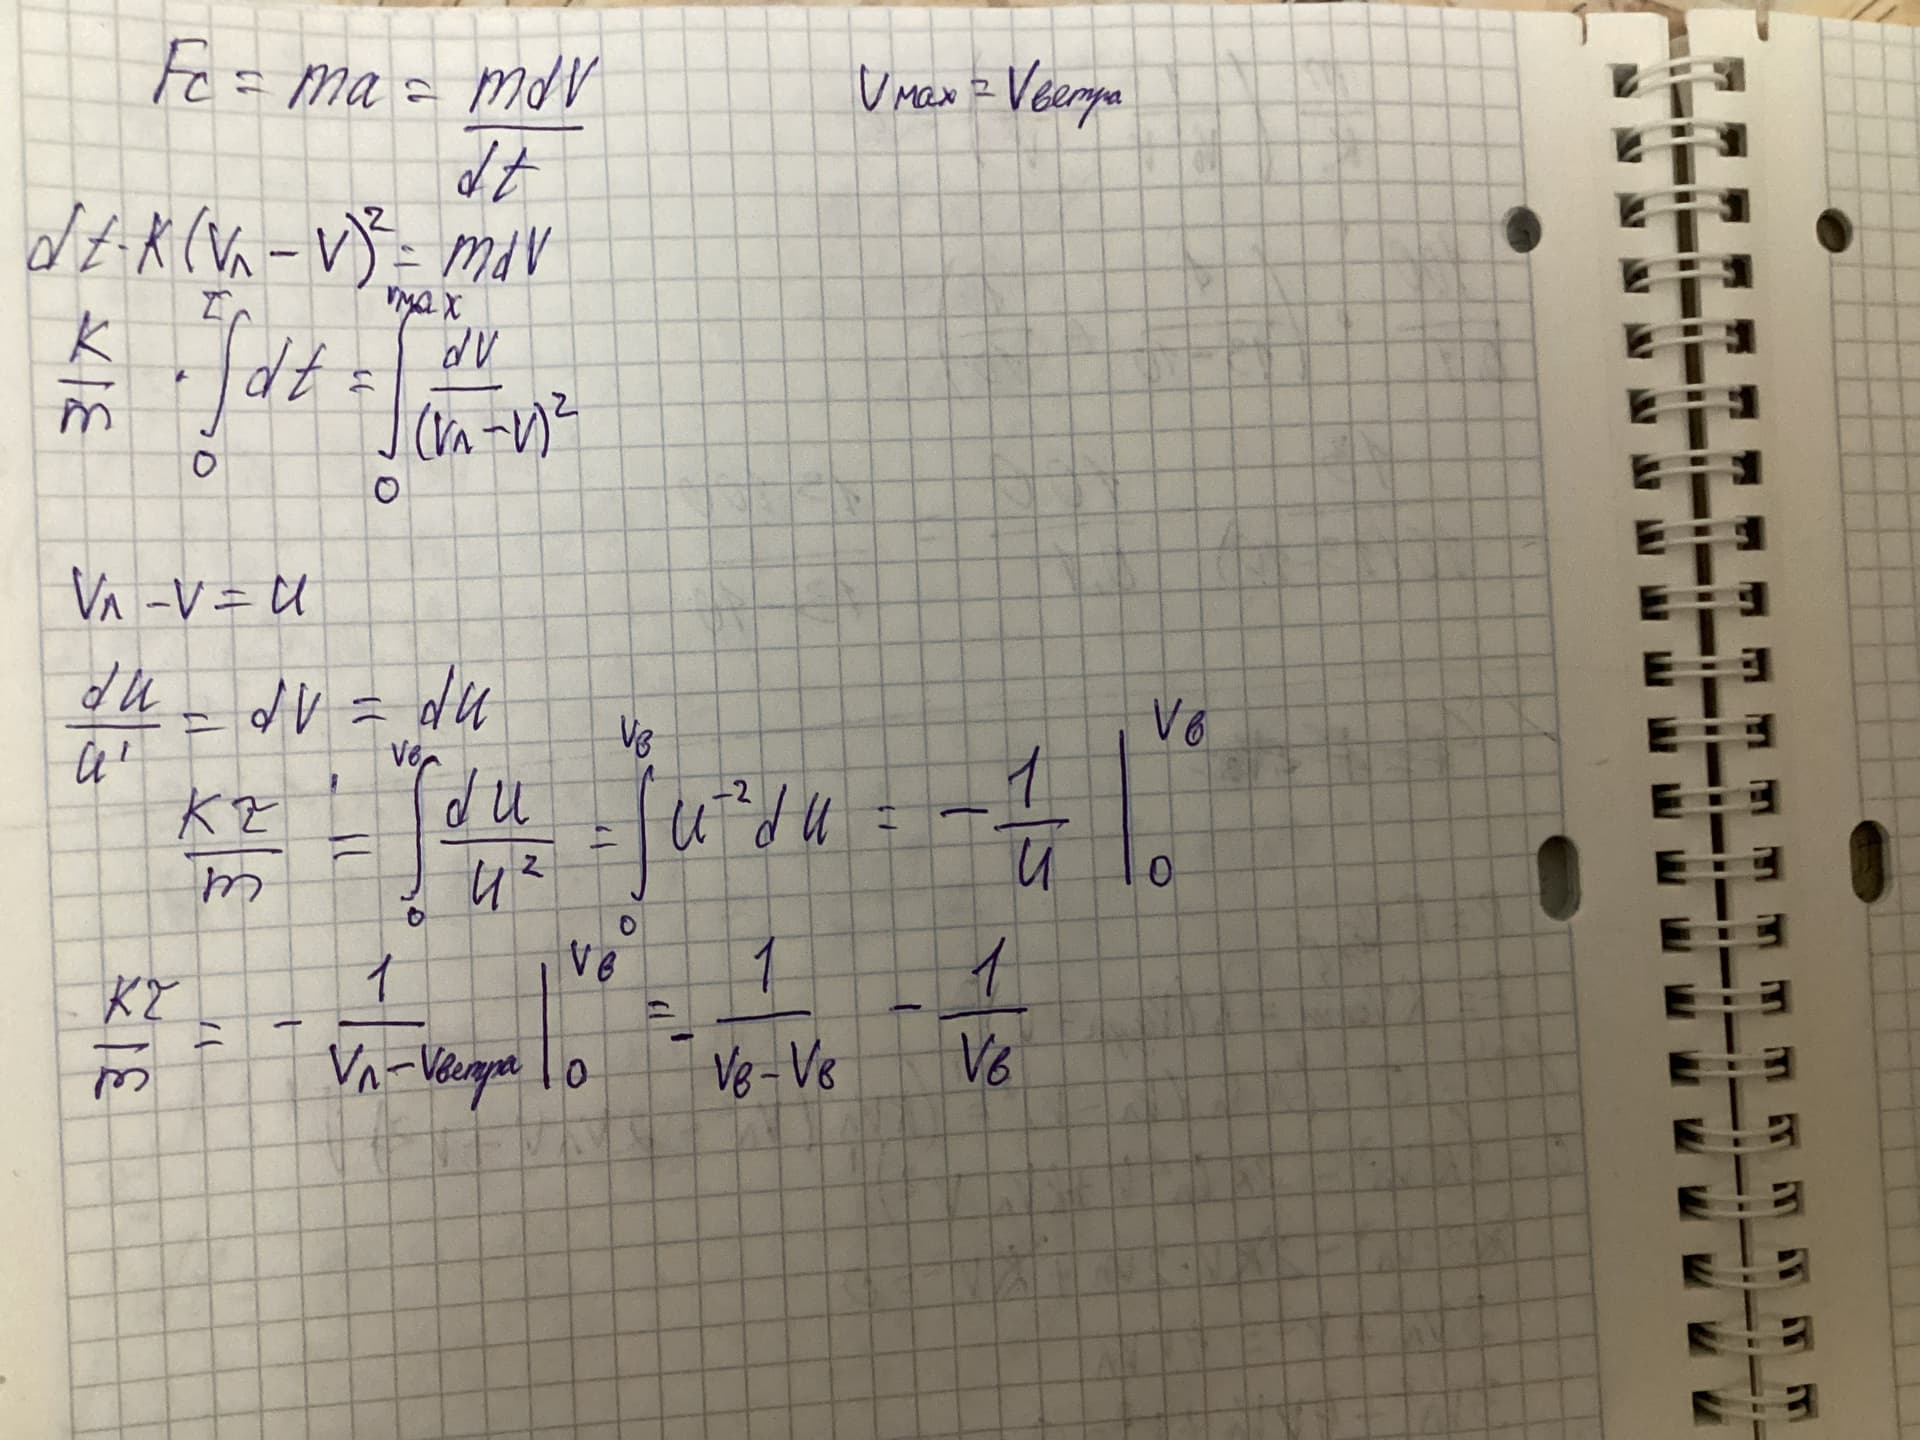 Fc = ma = mdV/dt
Vmax = Vветра
dt·K(Vл - V)² = mdV
K/m · ∫₀^τ dt = ∫₀^Vmax dV/(Vл - V)²
Vл - V = u
du/u' = dV = du
Kτ/m = ∫₀^Vв du/u² = ∫₀^Vв u⁻² du = - 1/u |₀^Vв
Kτ/m = - 1/(Vл - Vветра) |₀^Vв = - 1/(Vв - Vв) - 1/Vв